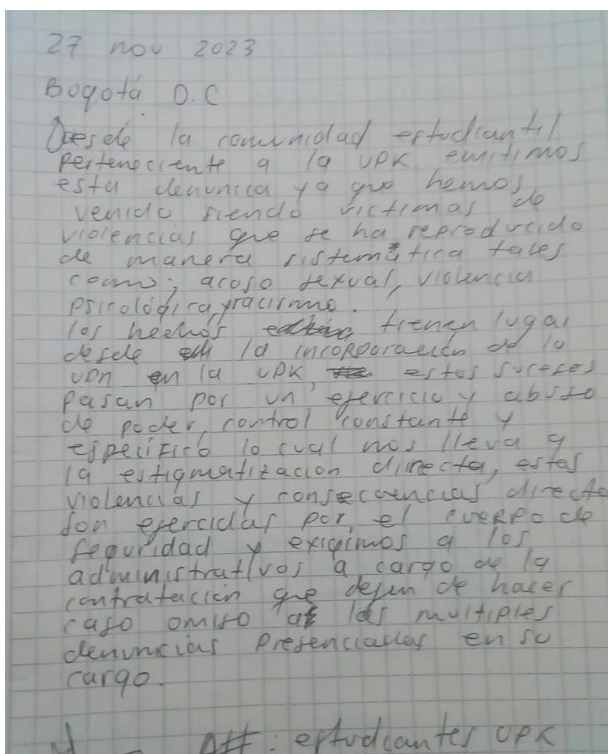 27 nov 2023
Bogotá D.C
Desde la comunidad estudiantil
perteneciente a la UPK emitimos
esta denunica ya que hemos
venido siendo victimas de
violencias que se ha reproducido
de manera sistemática tales
como; acoso sexual, violencia
psicológica y racismo.
los hechos tienen lugar
desde la incorporación de la
upn en la UPK, estos sucesos
pasan por un ejercicio y abuso
de poder, control constante y
especifico lo cual nos lleva a
la estigmatización directa, estas
violencias y consecuencias directa
son ejercidas por, el cuerpo de
seguridad y exigimos a los
administrativos a cargo de la
contratación que dejen de hacer
caso omiso a las multiples
denuncias presenciadas en su
cargo.
Att: estudiantes UPK